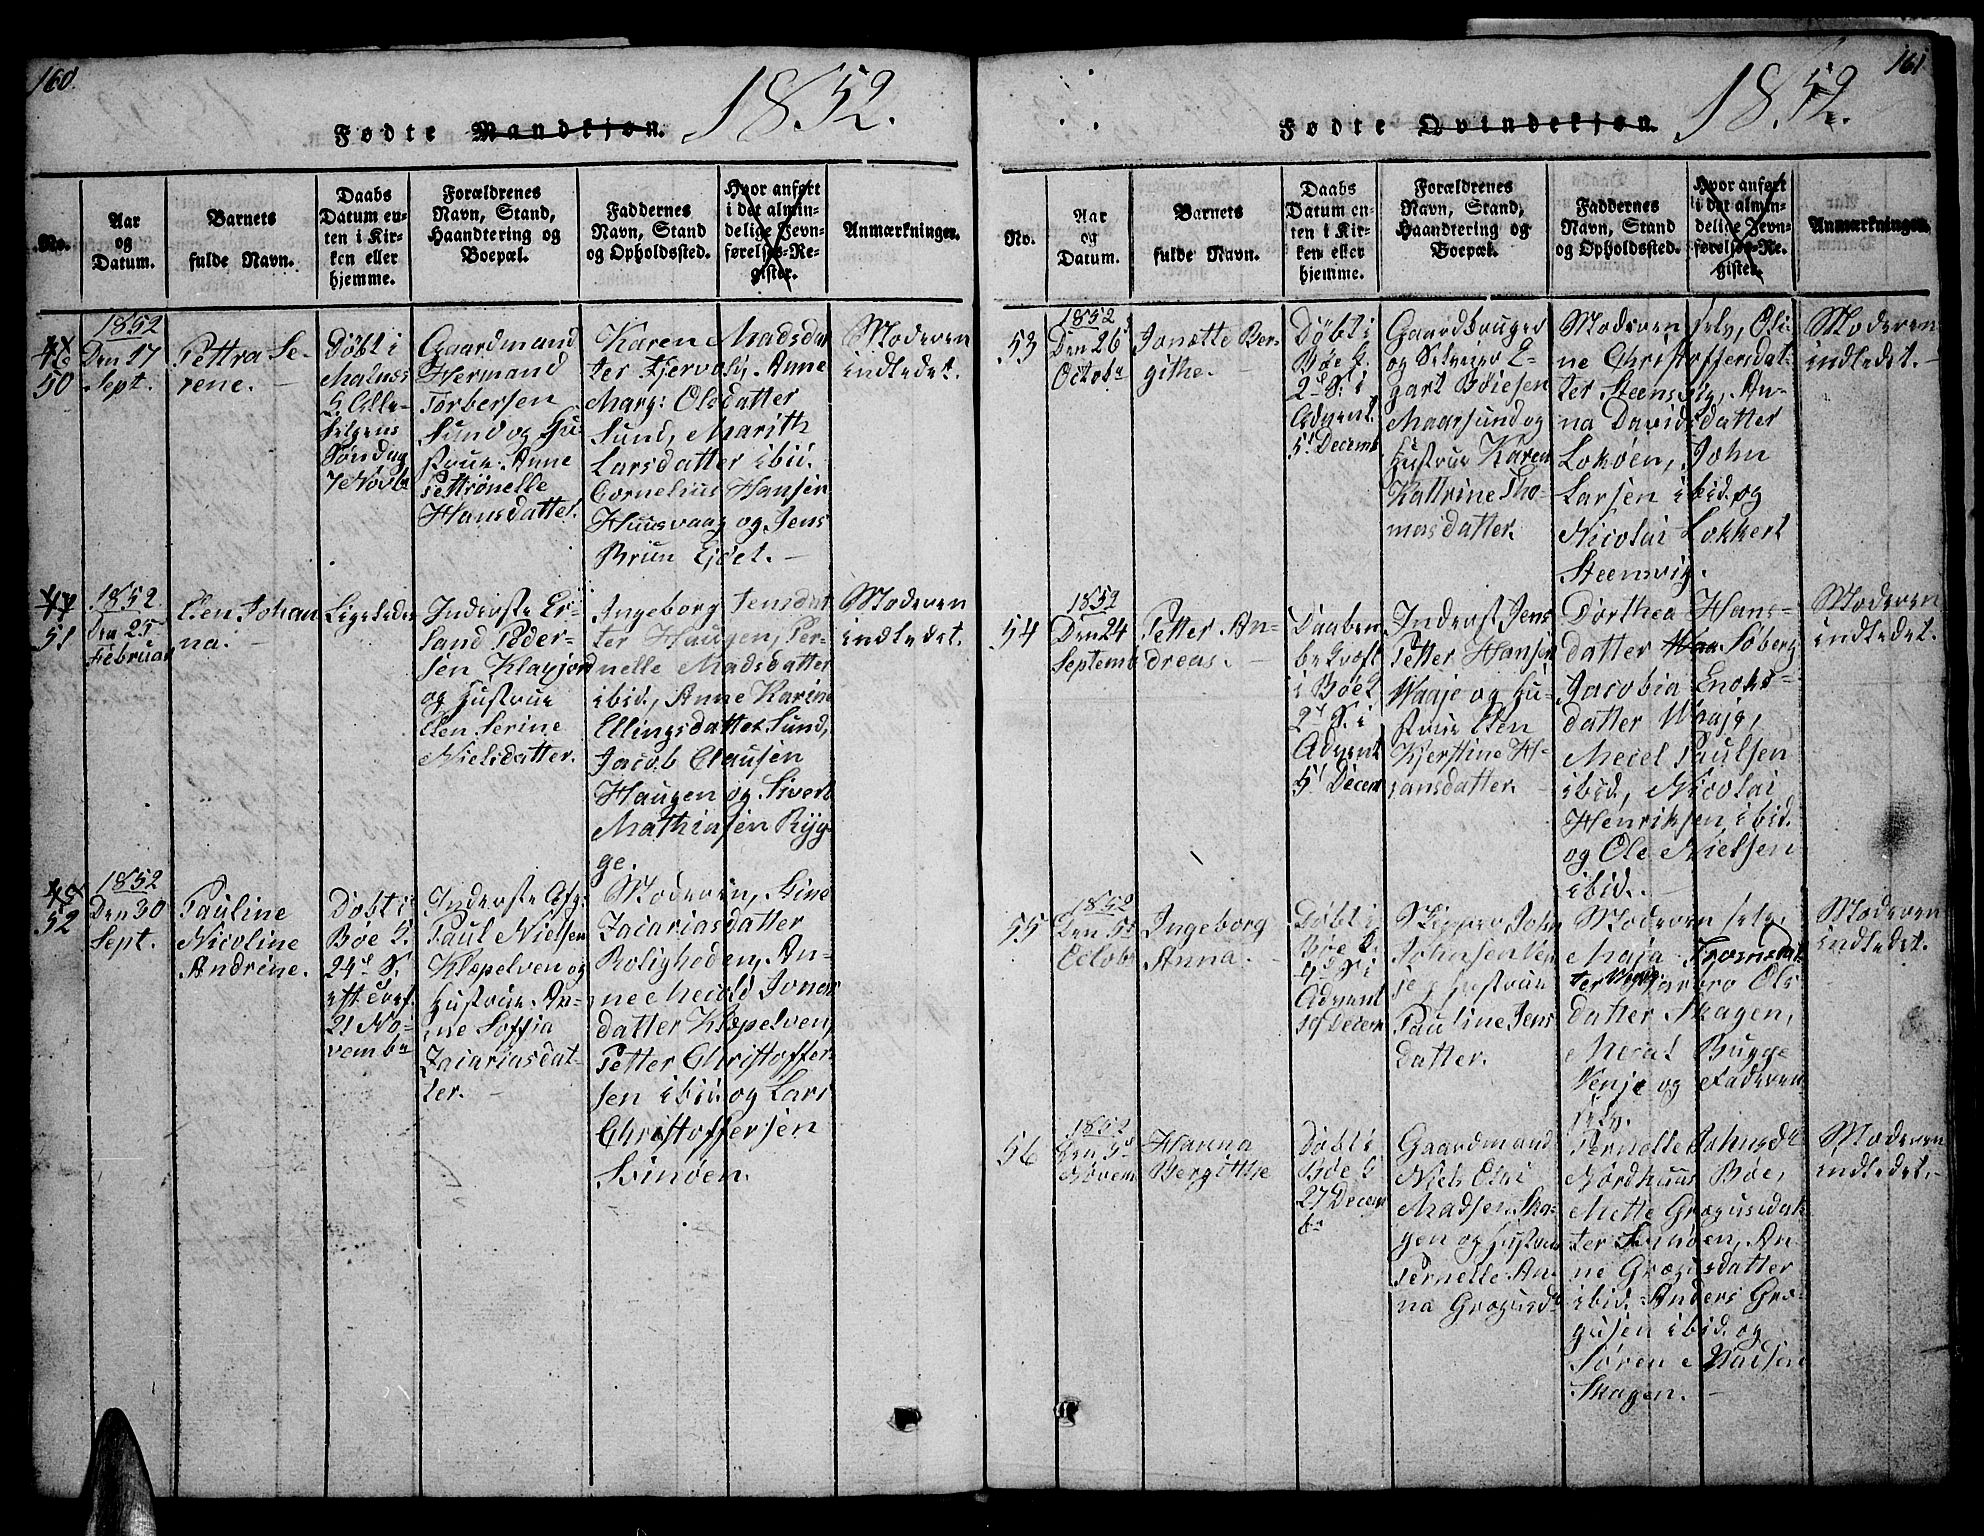 160.
1852.
Fødte Mandkjøn.
No.
Aar
og
Datum.
Barnets
fulde Navn.
Daabs
Datum en-
ten i Kir-
ken eller
hjemme.
Forældrenes
Navn, Stand,
Haandtering og
Boepæl.
Faddernes
Navn, Stand
og Opholdssted.
Hvor anført
i det almin-
delige Jevn-
førelses-Re-
gister.
Anmærkninger.
50
1852
Den 17
Sept.
Pettra Se-
rene.
Døbt i
Malnes
S. Alle-
helgens
Søndag
7e Novbr
Gaardmand
Hermand
Torbersen
Sund og Hu-
strue Anne
Pettronelle
Hansdatter.
Karen Madsdat
ter Fjervold, Anne
Marg: Olsdatter
Sund, Marith
Larsdatter ibid.
Cornelius Hansen
Huusvaag og Jens
Bruun Ejdet.
Moderen
indledet.
51
1852.
Den 25
Februar
Elen Johan
na.
Ligeledes
Inderste Er-
land Peder-
sen Klagjord
og Hustrue
Elen Serine
Nielsdatter.
Ingeborg Jensdat
ter Haugen, Per-
nelle Madsdatter
ibid, Anne Karine
Ellingsdatter Sund,
Jacob Clausen
Haugen og Sivert
Mathiasen Ryg-
ge.
Moderen
indledet.
52
1852
Den 30
Sept.
Pauline
Nicoline
Andrine.
Døbt i
Bøe K.
24de S.
eft Tref.
21 No-
vembr
Inderste Afg:
Paul Nielsen
Klæpelven og
Hustrue An-
ne Soffia
Zacariasdat-
ter.
Moderen, Sine
Zacariasdatter
Roligheden, An-
ne Merete Jonas
datter Klæpelven,
Petter Christoffer-
sen ibid. og Lars
Christoffersen
Svinøen.
161
1852.
Fødte Qvindekjøn.
No.
Aar
og
Datum.
Barnets
fulde Navn.
Daabs
Datum en-
ten i Kir-
ken eller
hjemme.
Forældrenes
Navn, Stand,
Haandtering og
Boepæl.
Faddernes
Navn, Stand
og Opholdssted.
Hvor anført
i det almin-
delige Jevn-
førelses-Re-
gister.
Anmærkninger.
53
1852
Den 26
Octobr
Jonette Ber-
githe.
Døbt i
Bøe K.
2d S. i
Advent
5t Decemb
Gaardbruger
og Selveier E-
gart Bøiesen
Maarsund og
Hustrue Karen
Kattrine Tho-
masdatter.
Moderen selv, Oli
ne Christoffersdat-
ter Steensvig, An-
na Davidsdatter
Lokøen, John
Larsen ibid. og
Nicolai Lokkert
Steensvig.
Moderen
indledet.
54
1852
Den 24
Septemb
Petter An-
dreas.
Daaben
bekræft
i Bøe K
2d S. i
Advent
5t Decem
Inderst Jens
Petter Hansen
Waaje og Hu-
strue Elen
Kjerstine H-
ansdatter.
Dorthea Hans-
datter Søberg
Jacobia Enoks-
datter Waaje,
Mecel Paulsen
ibid, Nicolai
Henriksen ibid.
og Ole Nielsen
ibid.
Moderen
indledet.
55
1852
Den 5t
Octobr
Ingeborg
Anna.
Døbt i
Bøe K.
4d S. i
Advent
19 Decem
Skipper John
Johnsen Ven
je og Hustrue
Pauline Jens
datter.
Moderen selv,
Maja Tromsdat
ter Venje, Marbro Ols
datter Skagen,
Mecal Bugge
Venje og Faderen
selv.
Moderen
indledet.
56
1852
Den 5t
Novem
Hanna
Bergitthe
Døbt i
Bøe K
27 Decem
br
Gaardmand
Niels Olai
Madsen Ska-
gen og Hustrue
Pernelle An-
na Grogusdt
Pernelle Johnsdt
Nordhuus Bøe,
Mette Grogusdat-
ter Svinøen, An
ne Grogusdatter
ibid. Anders Gro-
gusen ibid. og
Søren Madsen
Skagen.
Moderen
indledet.